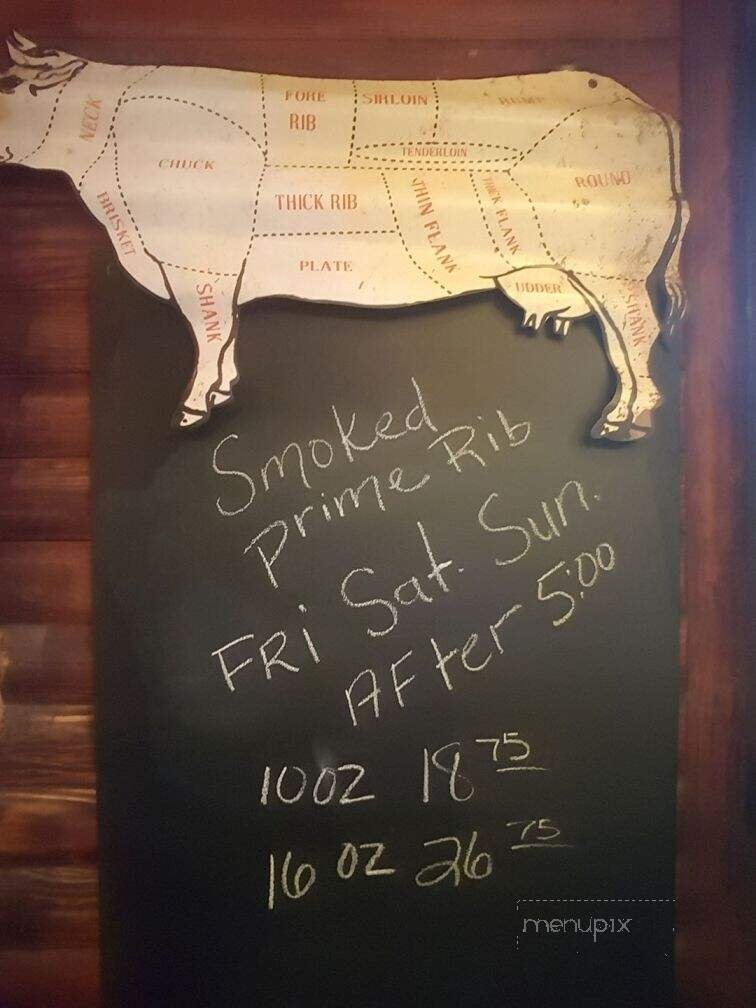 NECK
FORE
RIB
SIRLOIN
RUMP
CHUCK
TENDERLOIN
BRISKET
THICK RIB
THIN FLANK
THICK FLANK
ROUND
PLATE
SHANK
UDDER
SHANK
Smoked
Prime Rib
FRi Sat. Sun.
AFter 5:00
10 OZ 18 75
16 OZ 26 75
menupix